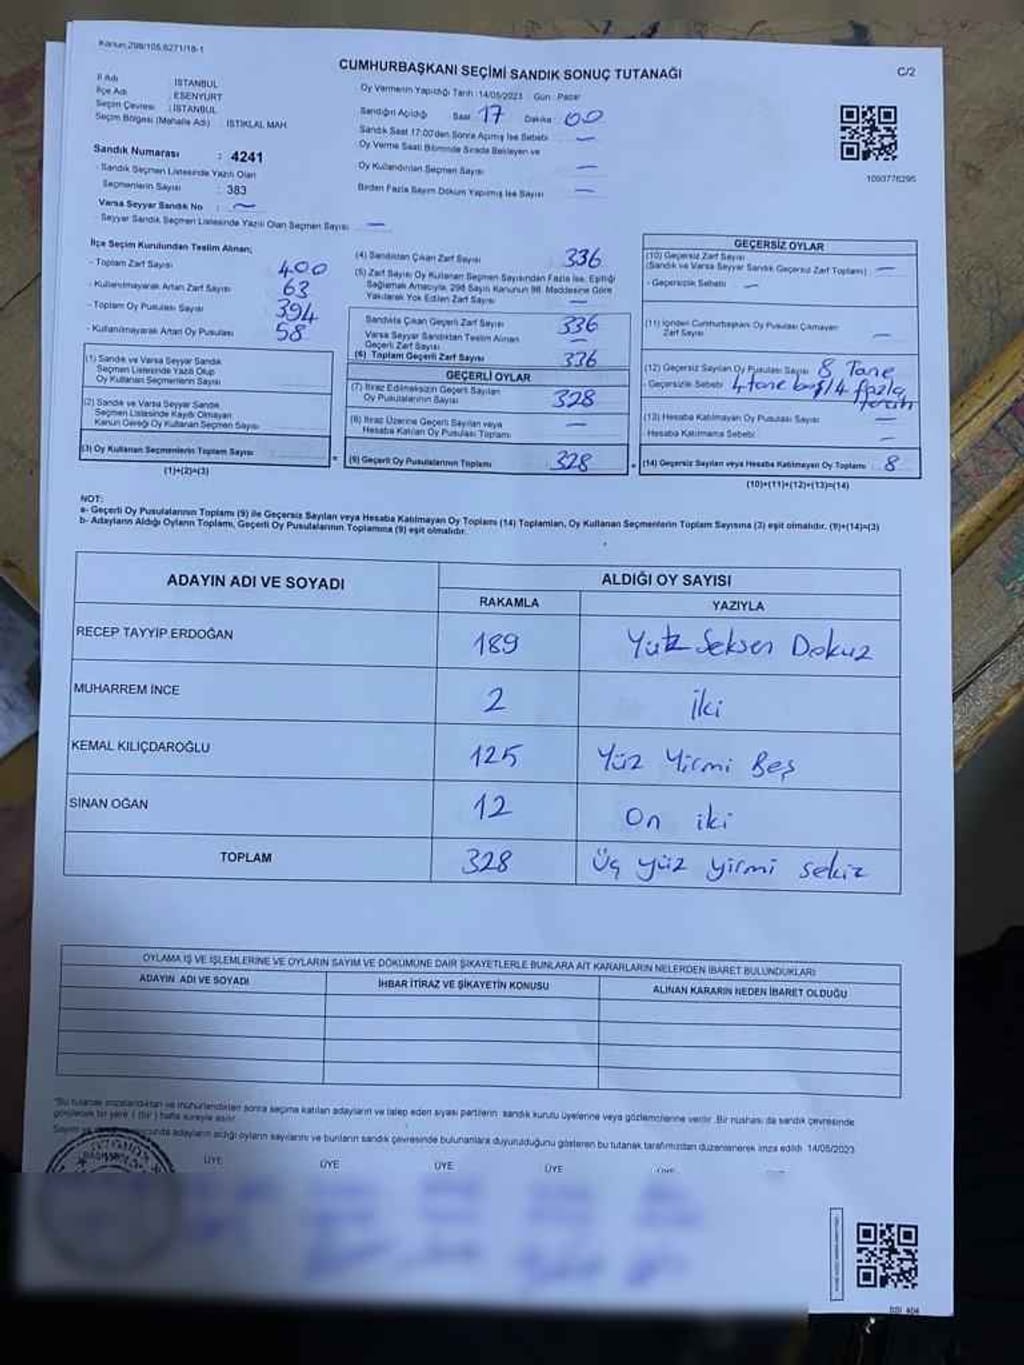 Kanun:298/105,6271/18-1
CUMHURBAŞKANI SEÇİMİ SANDIK SONUÇ TUTANAĞI
C/2
İl Adı : İSTANBUL
İlçe Adı : ESENYURT
Seçim Çevresi : İSTANBUL
Seçim Bölgesi (Mahalle Adı) : İSTİKLAL MAH
Sandık Numarası : 4241
Sandık Seçmen Listesinde Yazılı Olan
Seçmenlerin Sayısı : 383
Varsa Seyyar Sandık No : —
Seyyar Sandık Seçmen Listesinde Yazılı Olan Seçmen Sayısı —
Oy Vermenin Yapıldığı Tarih :14/05/2023 Gün : Pazar
Sandığın Açıldığı Saat 17 Dakika 00
Sandık Saat 17:00'den Sonra Açılmış İse Sebebi —
Oy Verme Saati Bitiminde Sırada Bekleyen ve
Oy Kullandırılan Seçmen Sayısı —
Birden Fazla Sayım Döküm Yapılmış İse Sayısı —
1090776295
İlçe Seçim Kurulundan Teslim Alınan;
- Toplam Zarf Sayısı 400
- Kullanılmayarak Artan Zarf Sayısı 63
- Toplam Oy Pusulası Sayısı 394
- Kullanılmayarak Artan Oy Pusulası 58
(1) Sandık ve Varsa Seyyar Sandık
Seçmen Listesinde Yazılı Olup
Oy Kullanan Seçmenlerin Sayısı
(2) Sandık ve Varsa Seyyar Sandık
Seçmen Listesinde Kayıtlı Olmayan
Kanun Gereği Oy Kullanan Seçmen Sayısı
(3) Oy Kullanan Seçmenlerin Toplam Sayısı
(1)+(2)=(3)
(4) Sandıktan Çıkan Zarf Sayısı 336
(5) Zarf Sayısı Oy Kullanan Seçmen Sayısından Fazla İse, Eşitliği
Sağlamak Amacıyla, 298 Sayılı Kanunun 98. Maddesine Göre
Yakılarak Yok Edilen Zarf Sayısı —
Sandıkta Çıkan Geçerli Zarf Sayısı 336
Varsa Seyyar Sandıktan Teslim Alınan
Geçerli Zarf Sayısı —
(6) Toplam Geçerli Zarf Sayısı 336
GEÇERLİ OYLAR
(7) İtiraz Edilmeksizin Geçerli Sayılan
Oy Pusulalarının Sayısı 328
(8) İtiraz Üzerine Geçerli Sayılan veya
Hesaba Katılan Oy Pusulası Toplamı —
(9) Geçerli Oy Pusulalarının Toplamı 328
GEÇERSİZ OYLAR
(10) Geçersiz Zarf Sayısı
(Sandık ve Varsa Seyyar Sandık Geçersiz Zarf Toplamı) —
- Geçersizlik Sebebi —
(11) İçinden Cumhurbaşkanı Oy Pusulası Çıkmayan
Zarf Sayısı —
(12) Geçersiz Sayılan Oy Pusulası Sayısı 8 Tane
- Geçersizlik Sebebi 4 tane boş/4 fazla
(13) Hesaba Katılmayan Oy Pusulası Sayısı —
- Hesaba Katılmama Sebebi —
(14) Geçersiz Sayılan veya Hesaba Katılmayan Oy Toplamı 8
(10)+(11)+(12)+(13)=(14)
NOT:
a- Geçerli Oy Pusulalarının Toplamı (9) ile Geçersiz Sayılan veya Hesaba Katılmayan Oy Toplamı (14) Toplamları, Oy Kullanan Seçmenlerin Toplam Sayısına (3) eşit olmalıdır. (9)+(14)=(3)
b- Adayların Aldığı Oyların Toplamı, Geçerli Oy Pusulalarının Toplamına (9) eşit olmalıdır.
ADAYIN ADI VE SOYADI
ALDIĞI OY SAYISI
RAKAMLA YAZIYLA
RECEP TAYYİP ERDOĞAN 189 Yüz Seksen Dokuz
MUHARREM İNCE 2 iki
KEMAL KILIÇDAROĞLU 125 Yüz Yirmi Beş
SİNAN OĞAN 12 On iki
TOPLAM 328 Üç yüz yirmi sekiz
OYLAMA İŞ VE İŞLEMLERİNE VE OYLARIN SAYIM VE DÖKÜMÜNE DAİR ŞİKAYETLERLE BUNLARA AİT KARARLARIN NELERDEN İBARET BULUNDUKLARI
ADAYIN ADI VE SOYADI İHBAR İTİRAZ VE ŞİKAYETİN KONUSU ALINAN KARARIN NEDEN İBARET OLDUĞU
*Bu tutanak imzalandıktan ve mühürlendikten sonra seçime katılan adayların ve talep eden siyasi partilerin sandık kurulu üyelerine veya gözlemcilerine verilir. Bir nüshası da sandık çevresinde
görülecek bir yere ( (bir ) hafta süreyle asılır.
adayların aldığı oyların sayılarını ve bunların sandık çevresinde bulunanlara duyurulduğunu gösteren bu tutanak tarafımızdan düzenlenerek imza edildi. 14/05/2023
ÜYE ÜYE ÜYE ÜYE